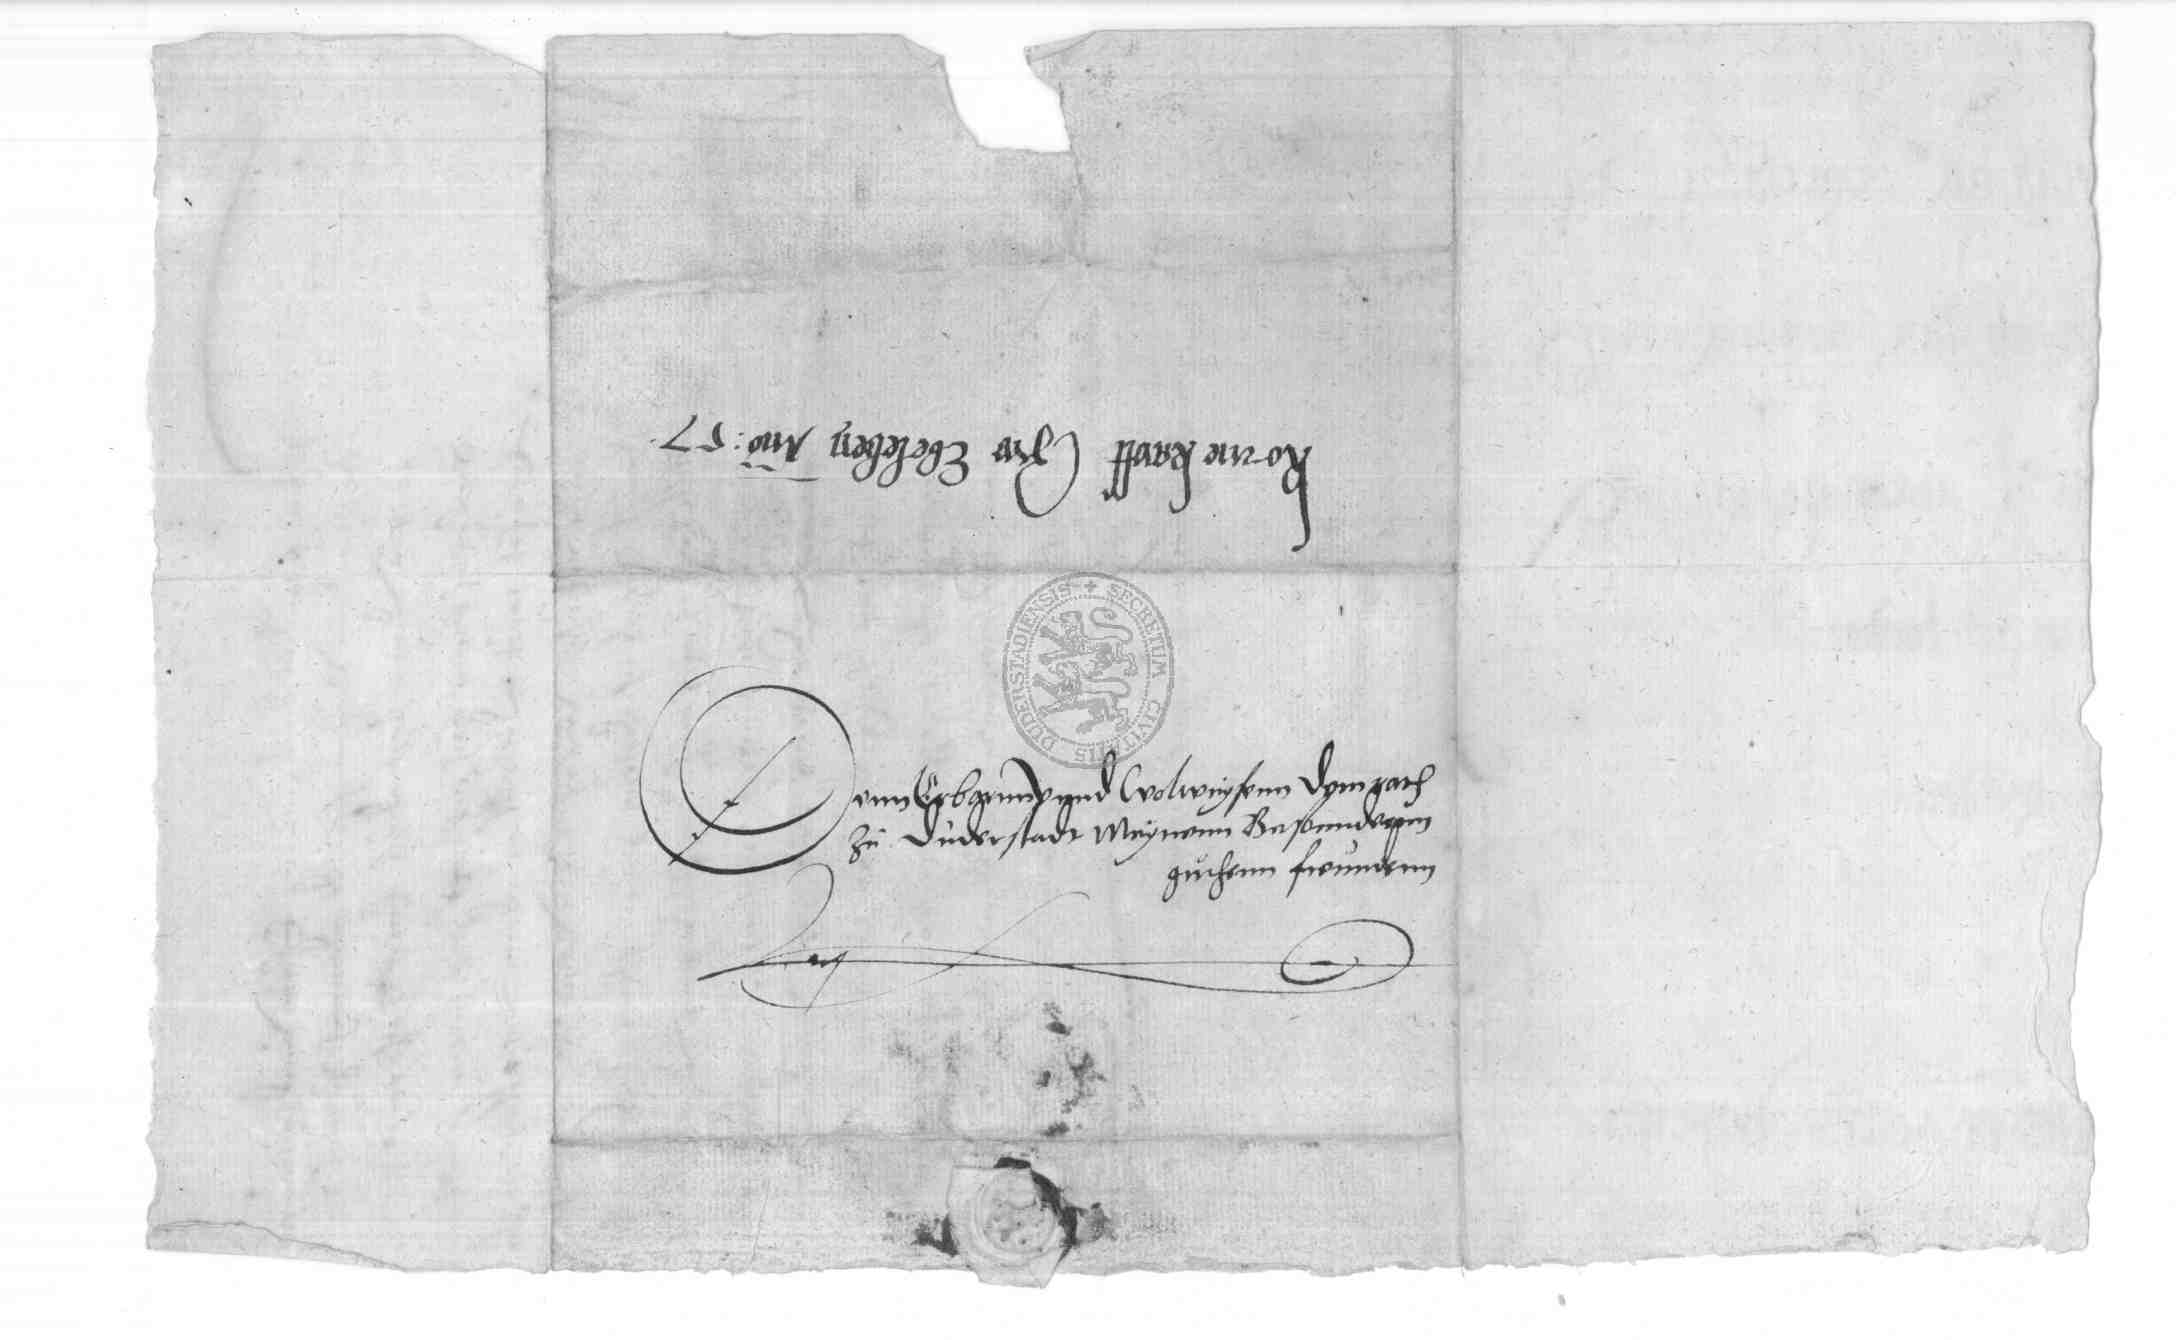 Kornekauff Chro Ebeleben Anno: 57
SECRETUM CIVITATIS DUDERSTADIENSIS
Denn Erbarnn vnnd Wolweysenn Dem rath
zu Duderstadt Meynenn Besonndernn
guthenn freundenn